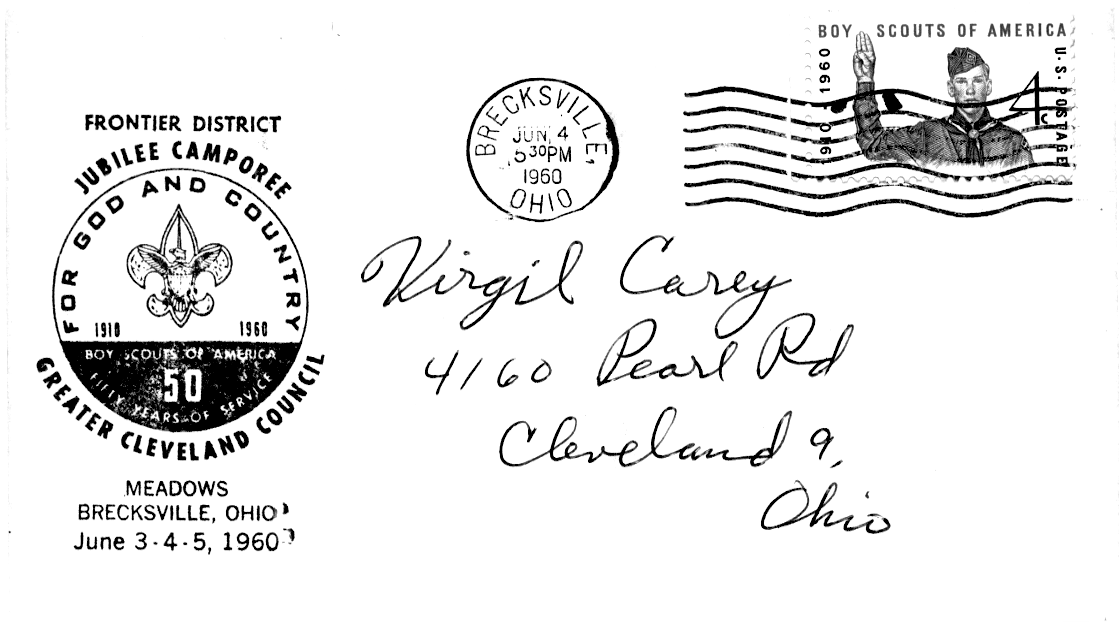 FRONTIER DISTRICT
JUBILEE CAMPOREE
FOR GOD AND COUNTRY
1910 1960
BOY SCOUTS OF AMERICA
50
FIFTY YEARS OF SERVICE
GREATER CLEVELAND COUNCIL
MEADOWS
BRECKSVILLE, OHIO
June 3-4-5, 1960
BRECKSVILLE,
JUN 4
530PM
1960
OHIO
BOY SCOUTS OF AMERICA
1910-1960
U.S. POSTAGE
4c
Virgil Carey
4160 Pearl Rd
Cleveland 9,
Ohio